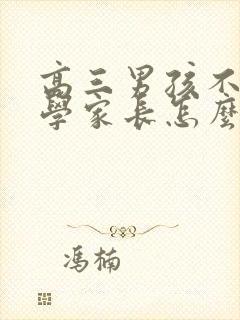 高三男孩不
學家長怎麼
馮楠